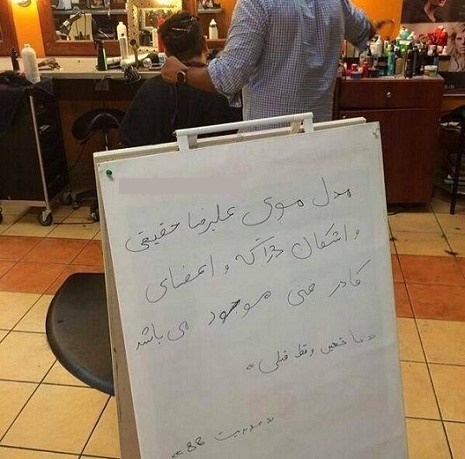 مدل موی علیرضا حقیقی
و اشکان دژاگه و اعضای
کادر فنی موجود می باشد
با تعیین وقت قبلی
مدیریت